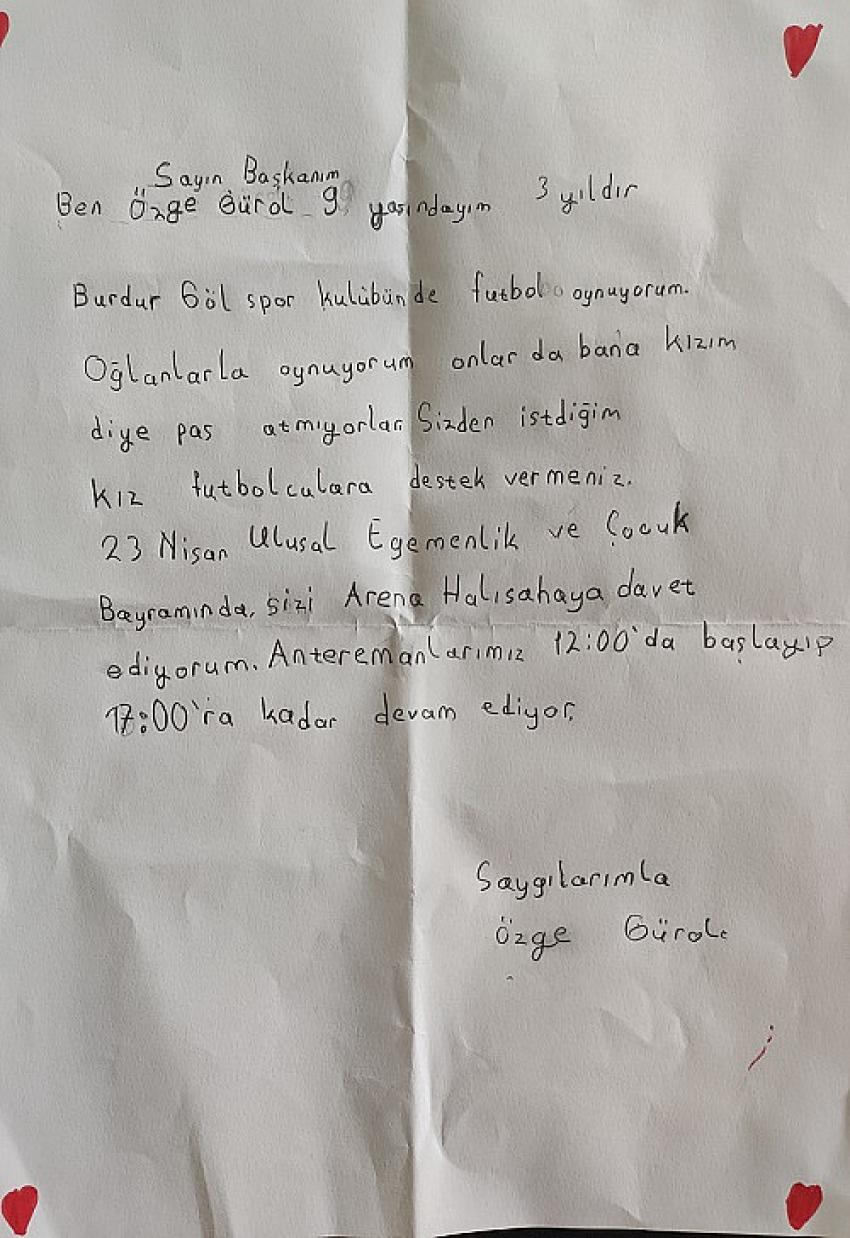 Sayın Başkanım
Ben Özge Gürol 9 yaşındayım 3 yıldır
Burdur Göl spor kulübünde futbol oynuyorum.
Oğlanlarla oynuyorum onlar da bana kızım
diye pas atmıyorlar. Sizden istdiğim
kız futbolculara destek vermeniz.
23 Nisan Ulusal Egemenlik ve Çocuk
Bayramında, sizi Arena Halısahaya davet
ediyorum. Anteremanlarımız 12:00'da başlayıp
17:00'ra kadar devam ediyor.
Saygılarımla
Özge Gürol